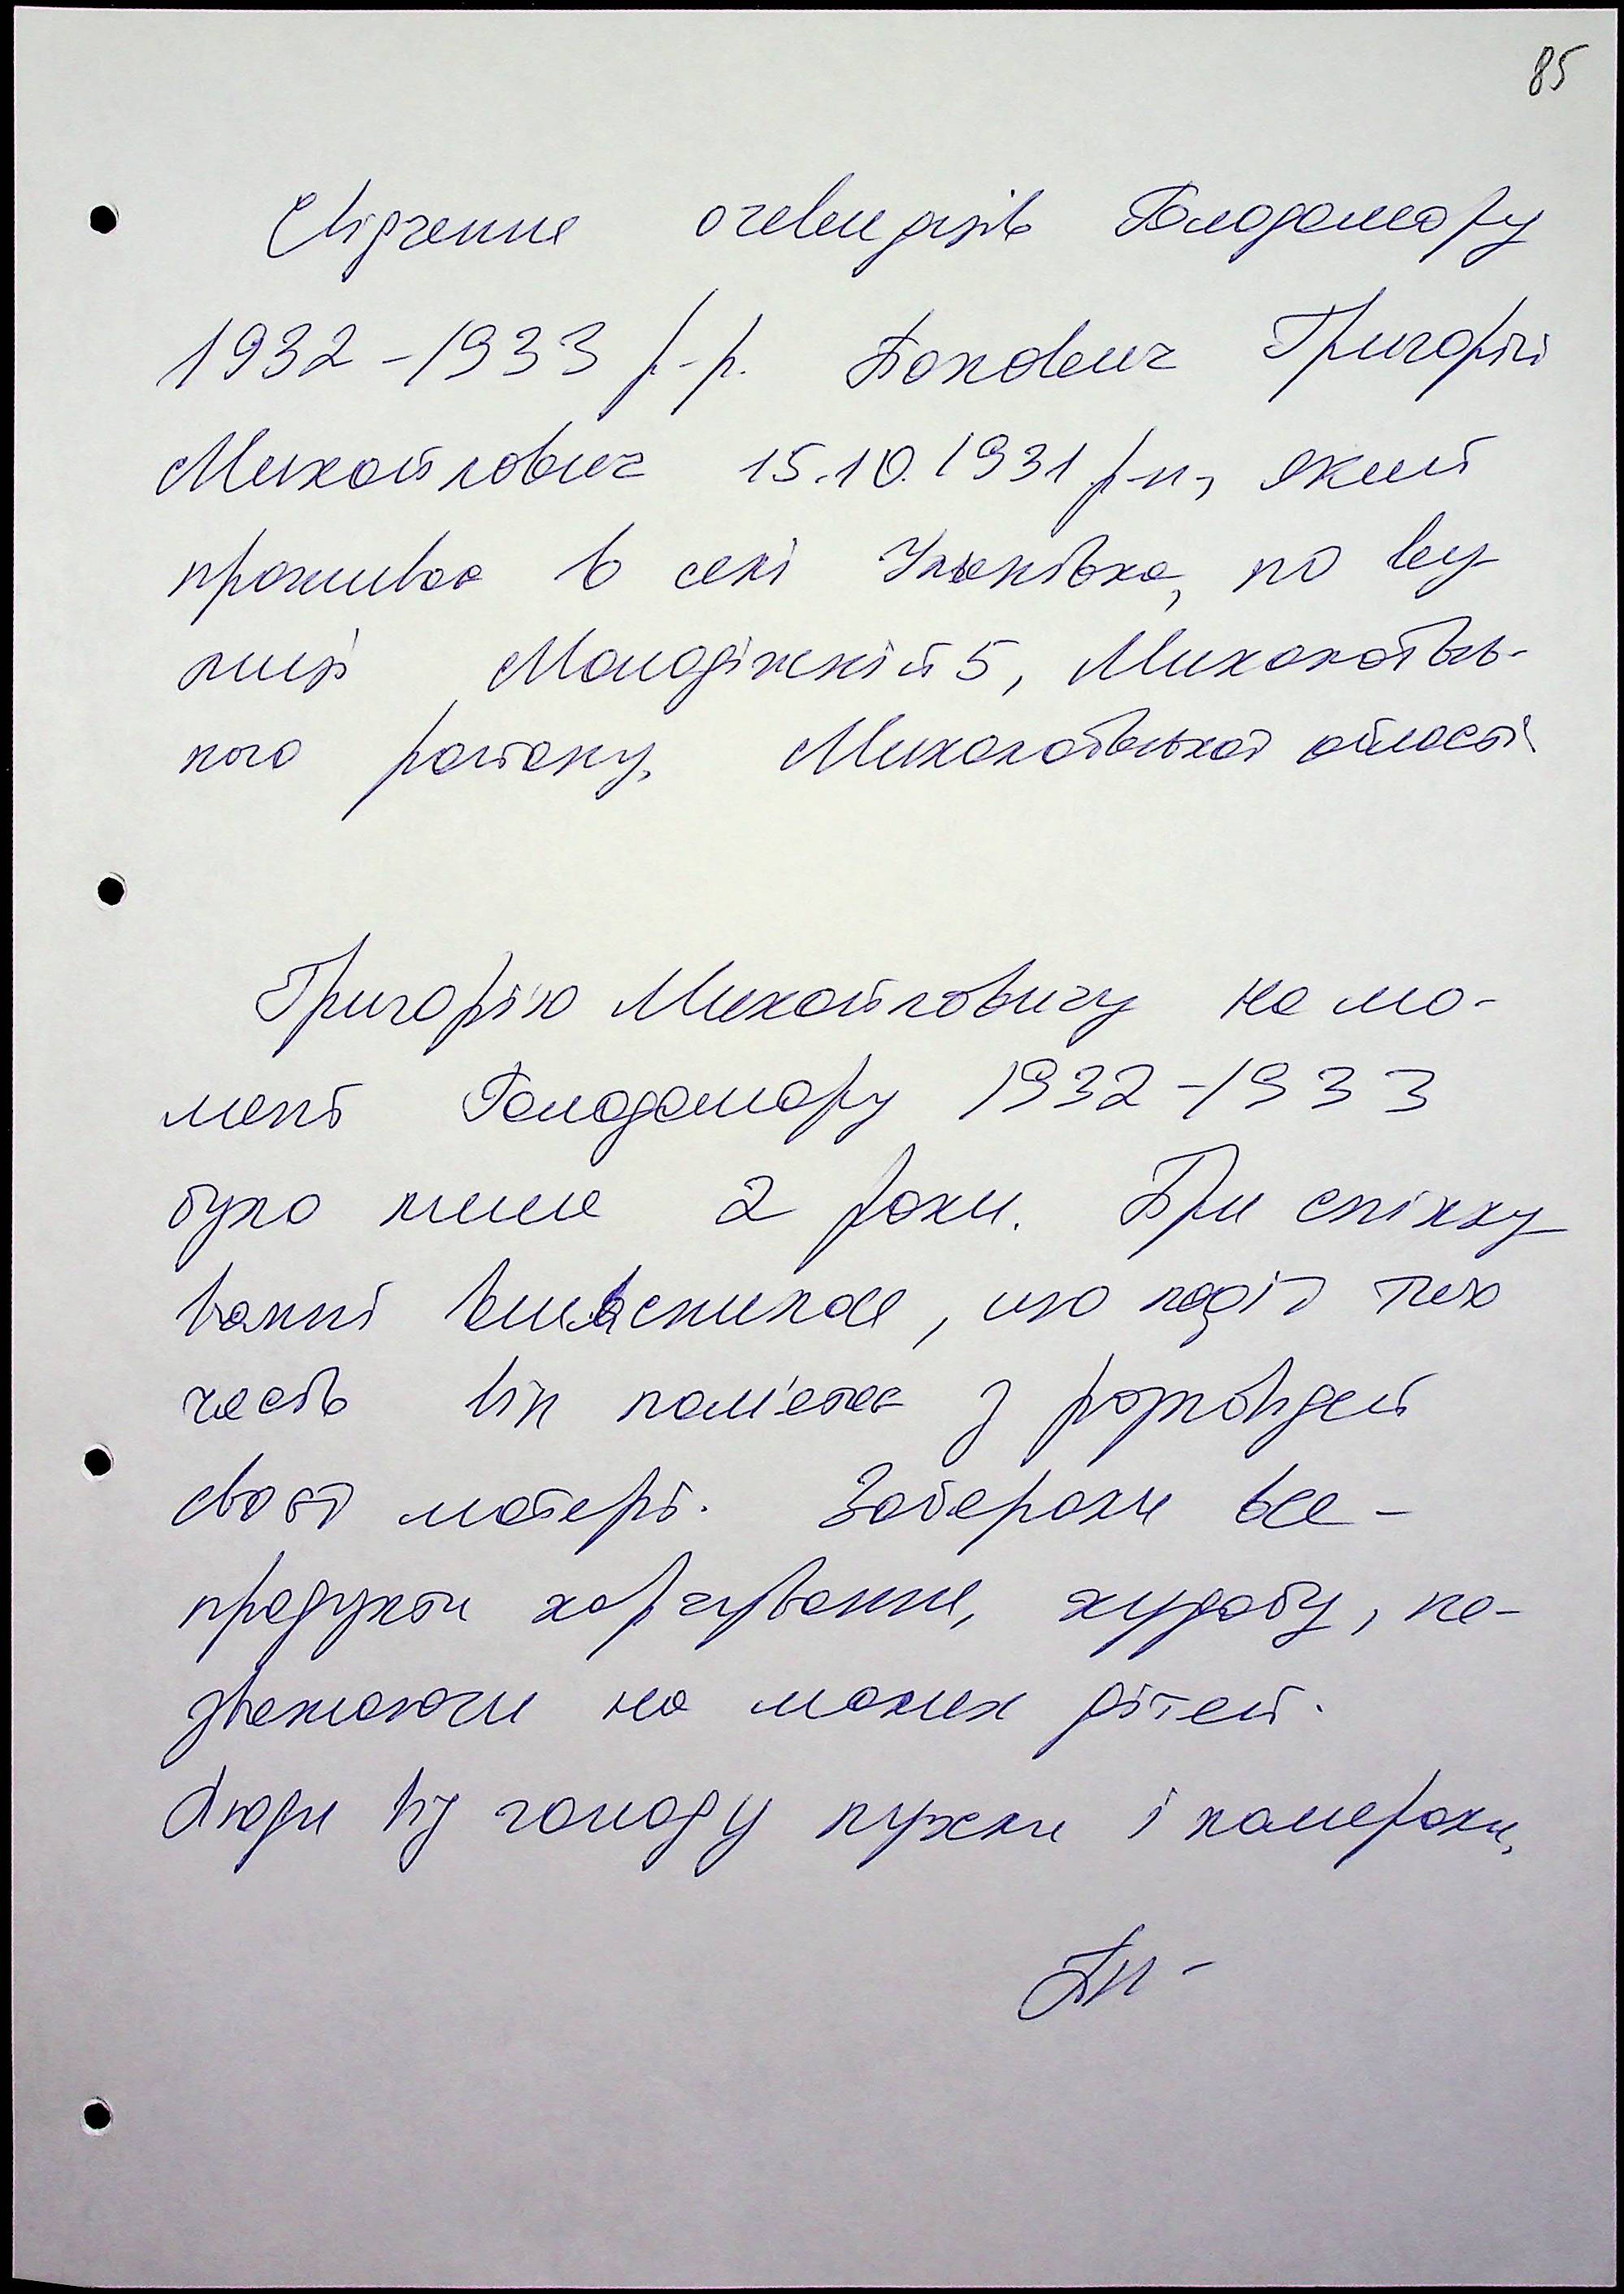 85
Свідчення очевидців Голодомору
1932-1933 р-р. Григорій
Михайлович 15.10.1931 р-н, який
проживає в селі Улянівка, по ву
лиці Молодіжній 5, Миколаївсь-
кого району, Миколаївської області
Григорію Михайловичу на мо-
мент Голодомору 1932-1933
було лише 2 роки. При спілку
ванні вияснилося, що події тих
часів він пам'ятає з розповідей
своєї матері. Забирали все -
продукти харчування, худобу, не-
зважаючи на малих дітей.
Люди від голоду пухли і помирали,